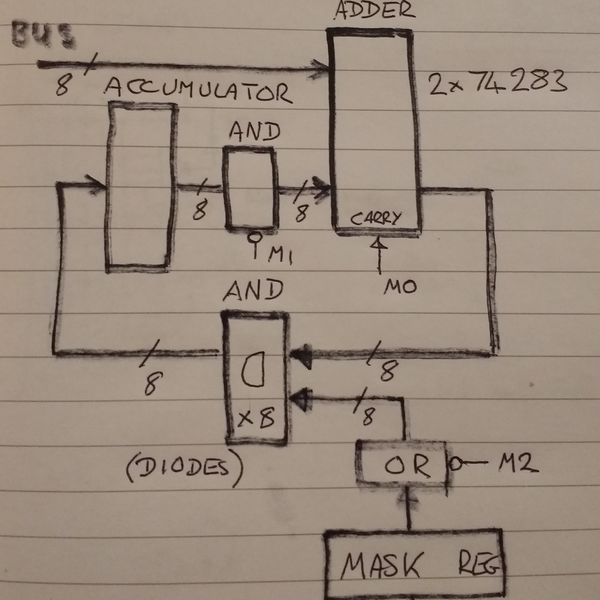 ADDER
BUS
8
2x74283
ACCUMULATOR
AND
8
8
CARRY
M1
M0
AND
8
8
8
x8
(DIODES)
OR
M2
MASK REG